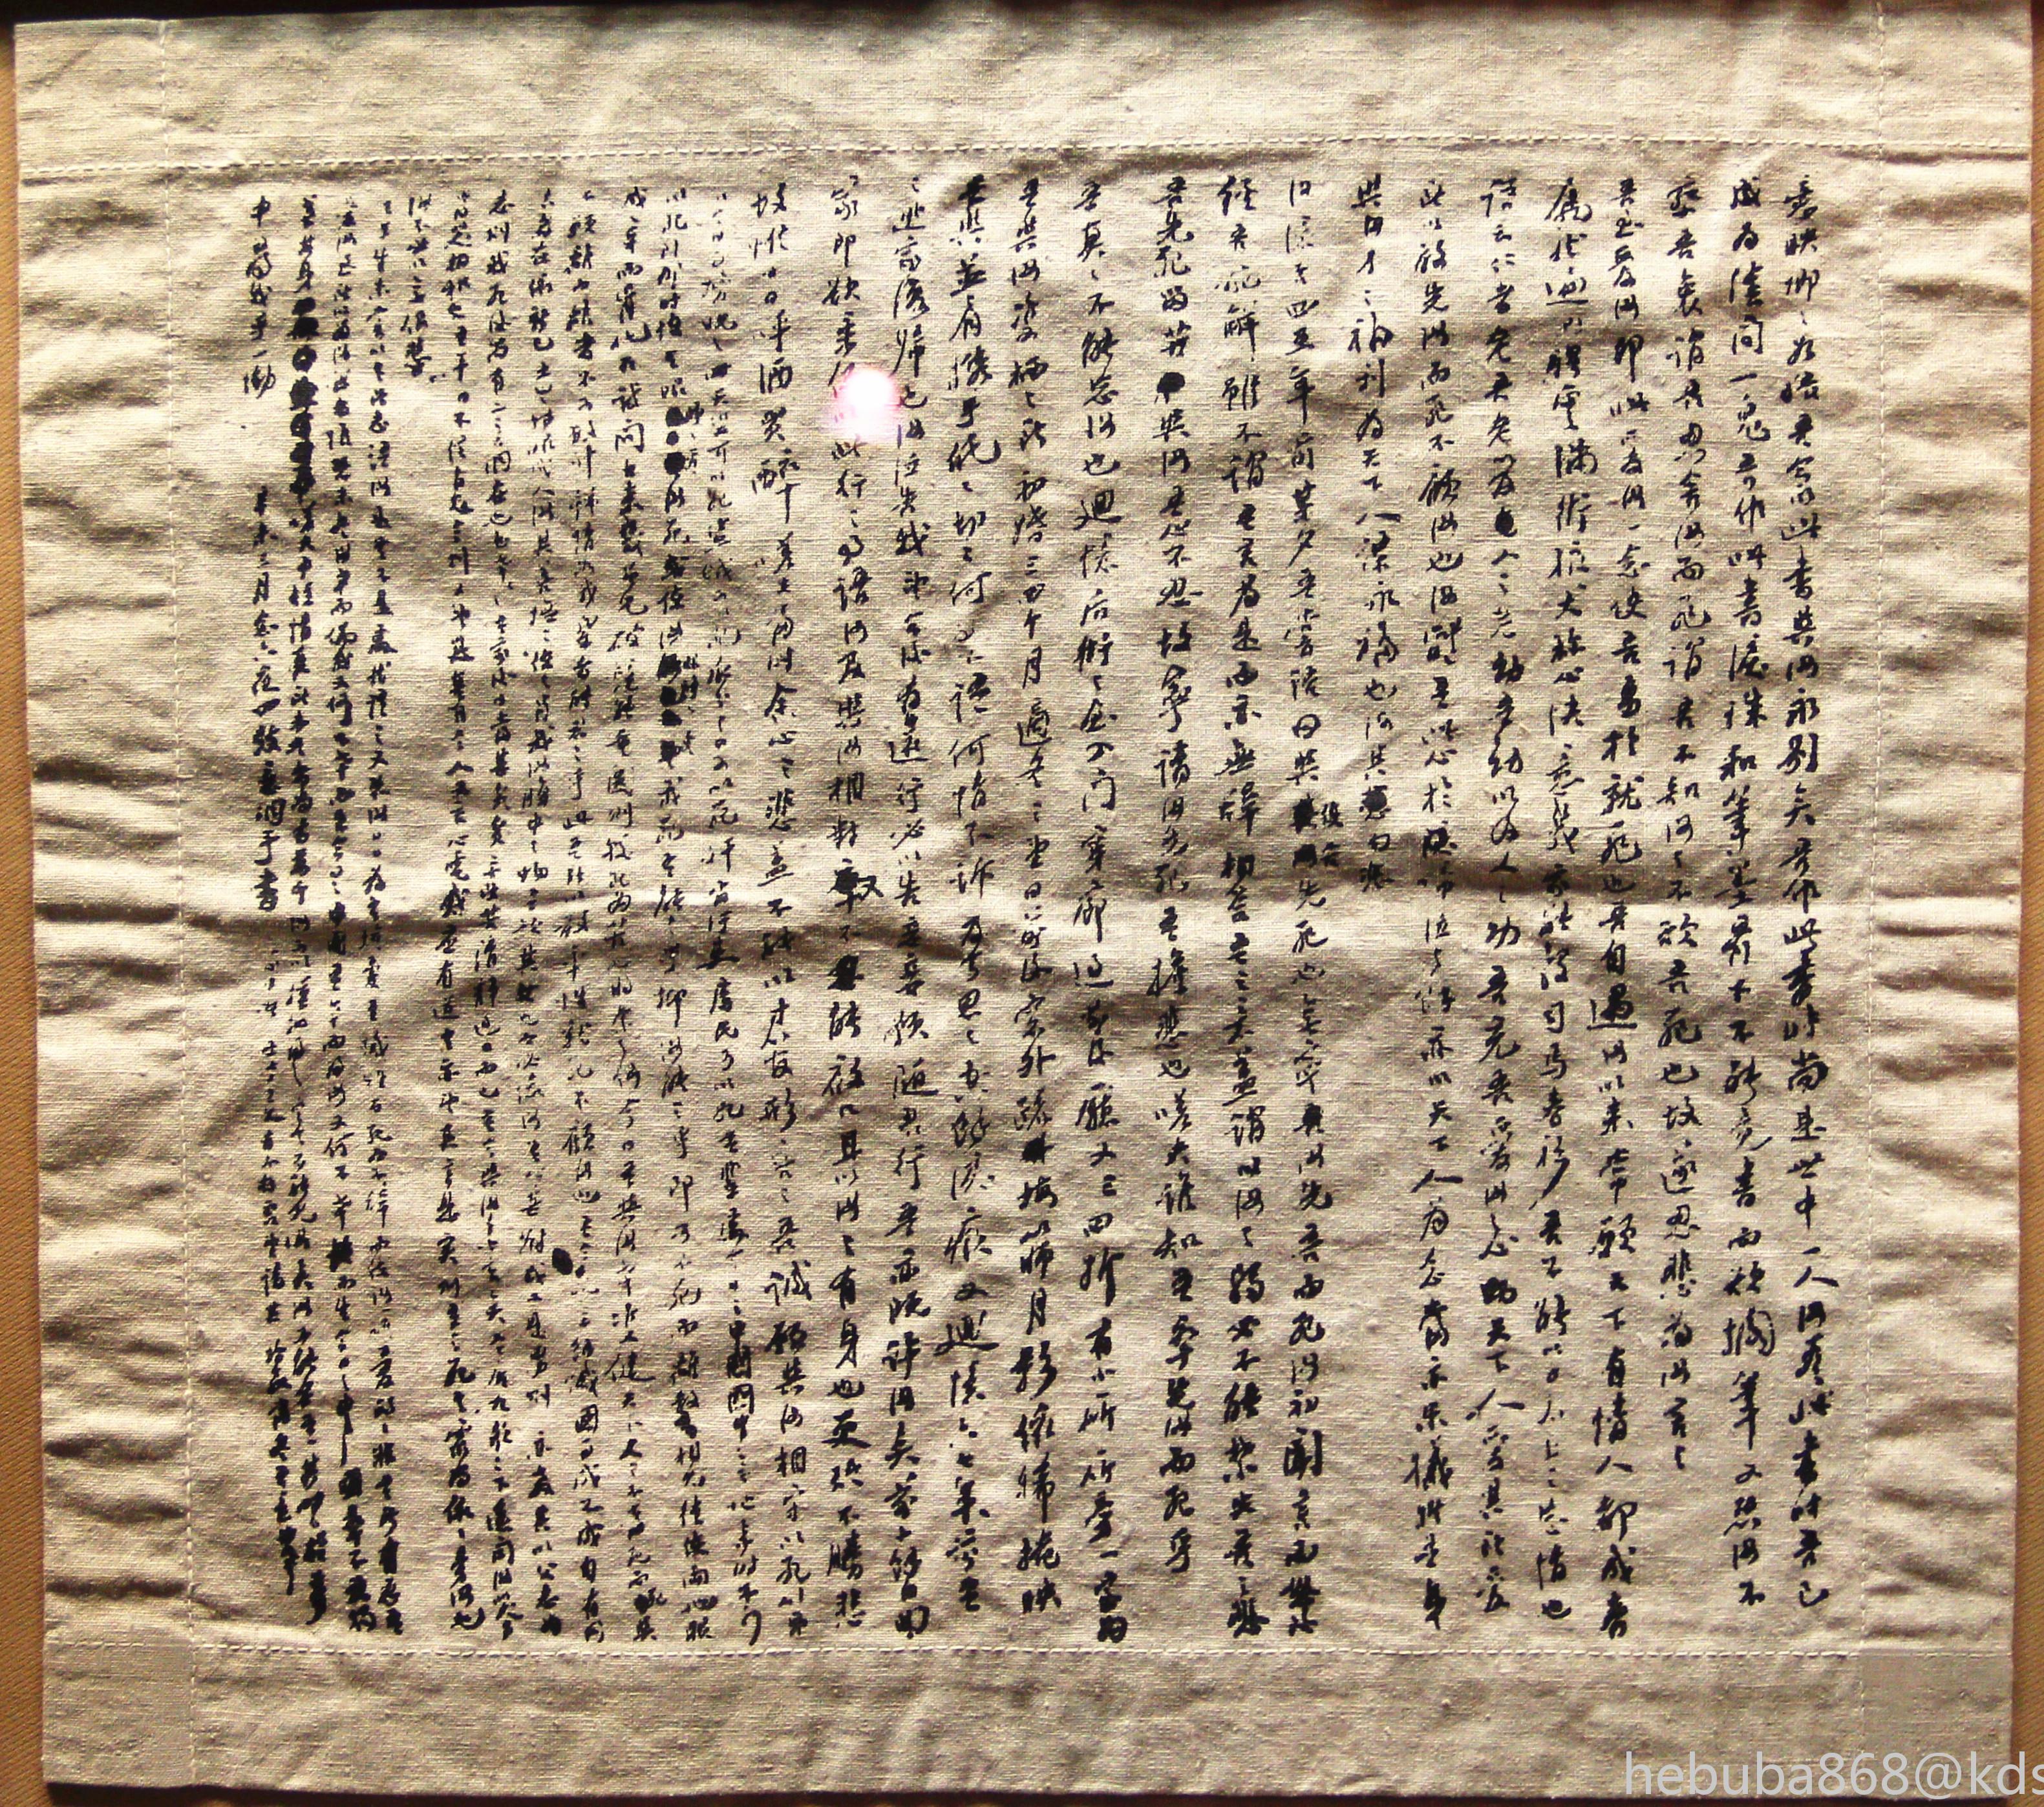 意映卿卿如晤吾今以此書與汝永別矣吾作此書時尚是世中一人汝看此書時吾已
成為陰間一鬼吾作此書淚珠和筆墨齊下不能竟書而欲擱筆又恐汝不
察吾衷謂吾忍舍汝而死謂吾不知汝之不欲吾死也故遂忍悲為汝言之
吾至愛汝即此愛汝一念使吾勇於就死也吾自遇汝以來常願天下有情人都成眷
屬然遍地腥雲滿街狼犬稱心快意幾家能彀司馬春衫吾不能學太上之忘情也
語云仁者老吾老以及人之老幼吾幼以及人之幼吾充吾愛汝之心助天下人愛其所愛
所以敢先汝而死不顧汝也汝體吾此心於啼泣之餘亦以天下人為念當亦樂犧牲吾身
與汝身之福利為天下人謀永福也汝其勿悲
汝憶否四五年前某夕吾嘗語曰與使吾先死也無寧汝先吾而死汝初聞言而怒後
經吾婉解雖不謂吾言為是而亦無辭相答吾之意蓋謂以汝之弱必不能禁失吾之悲
吾先死留苦與汝吾心不忍故寧請汝先死吾擔悲也嗟夫誰知吾卒先汝而死乎
吾真真不能忘汝也迴憶后街之屋入門穿廊過前後廳又三四折有小廳廳旁一室為
吾與汝雙栖之所初婚三四个月適冬之望日前後窗外疏梅篩月影依稀掩映
吾與並肩攜手低低切切何事不語何情不訴及今思之空餘淚痕又迴憶六七年前吾
之逃家復歸也汝泣告我望今後有遠行必以告妾妾願隨君行吾亦既許汝矣前十餘日回
家即欲乘便以此行之事語汝及與汝相對又不能啟口且以汝之有身也更恐不勝悲
故惟日日呼酒買醉嗟夫當時余心之悲蓋不能以寸管形容之吾誠願與汝相守以死第以
今日事勢觀之天災可以死盜賊可以死瓜分之日可以死奸官污吏虐民可以死吾輩處今日之中國國中無地無時不可
以死到那時使吾眼睜睜看汝死或使汝眼睜睜看我死吾能之乎抑汝能之乎即可不死而離散不相見徒使兩地眼
成穿而骨化石試問古來幾曾見破鏡能重圓則較死為苦也將奈之何今日吾與汝幸雙健天下人之不當死而死與
不願離而離者不可數計鍾情如我輩者能忍之乎此吾所以敢率性就死不顧汝也吾今死無餘憾國事成不成自有同
志者在依新已五歲轉眼成人汝其善撫之使之肖我汝腹中之物吾疑其女也女必像汝吾心甚慰或又是男則亦教其以父志為
志則我死後尚有二意洞在也甚幸甚幸吾家後日當甚貧貧無所苦清靜過日而已吾今與汝無言矣吾居九泉之下遙聞汝哭聲
當哭相和也吾平日不信有鬼今則又望其真有今人又言心電感應有道吾亦望其言是實則吾之死吾靈尚依依旁汝也
汝不必以無侶悲
吾平生未嘗以吾所志語汝是吾不是處然語之又恐汝日日為吾擔憂吾犧牲百死而不辭而使汝擔憂的的非吾所忍吾愛
汝至所以為汝謀者惟恐未盡汝幸而偶我又何不幸而生今日之中國吾幸而得汝又何不幸而生今日之中國卒不忍獨
善其身嗟夫巾短情長所未盡者尚有萬千汝可以模擬得之吾今不能見汝矣汝不能舍吾其時時於夢
中得我乎一慟 辛未三月念六夜四鼓意洞手書 家中諸母皆通文有不解處望請其指教當盡吾意為幸
hebuba868@kds